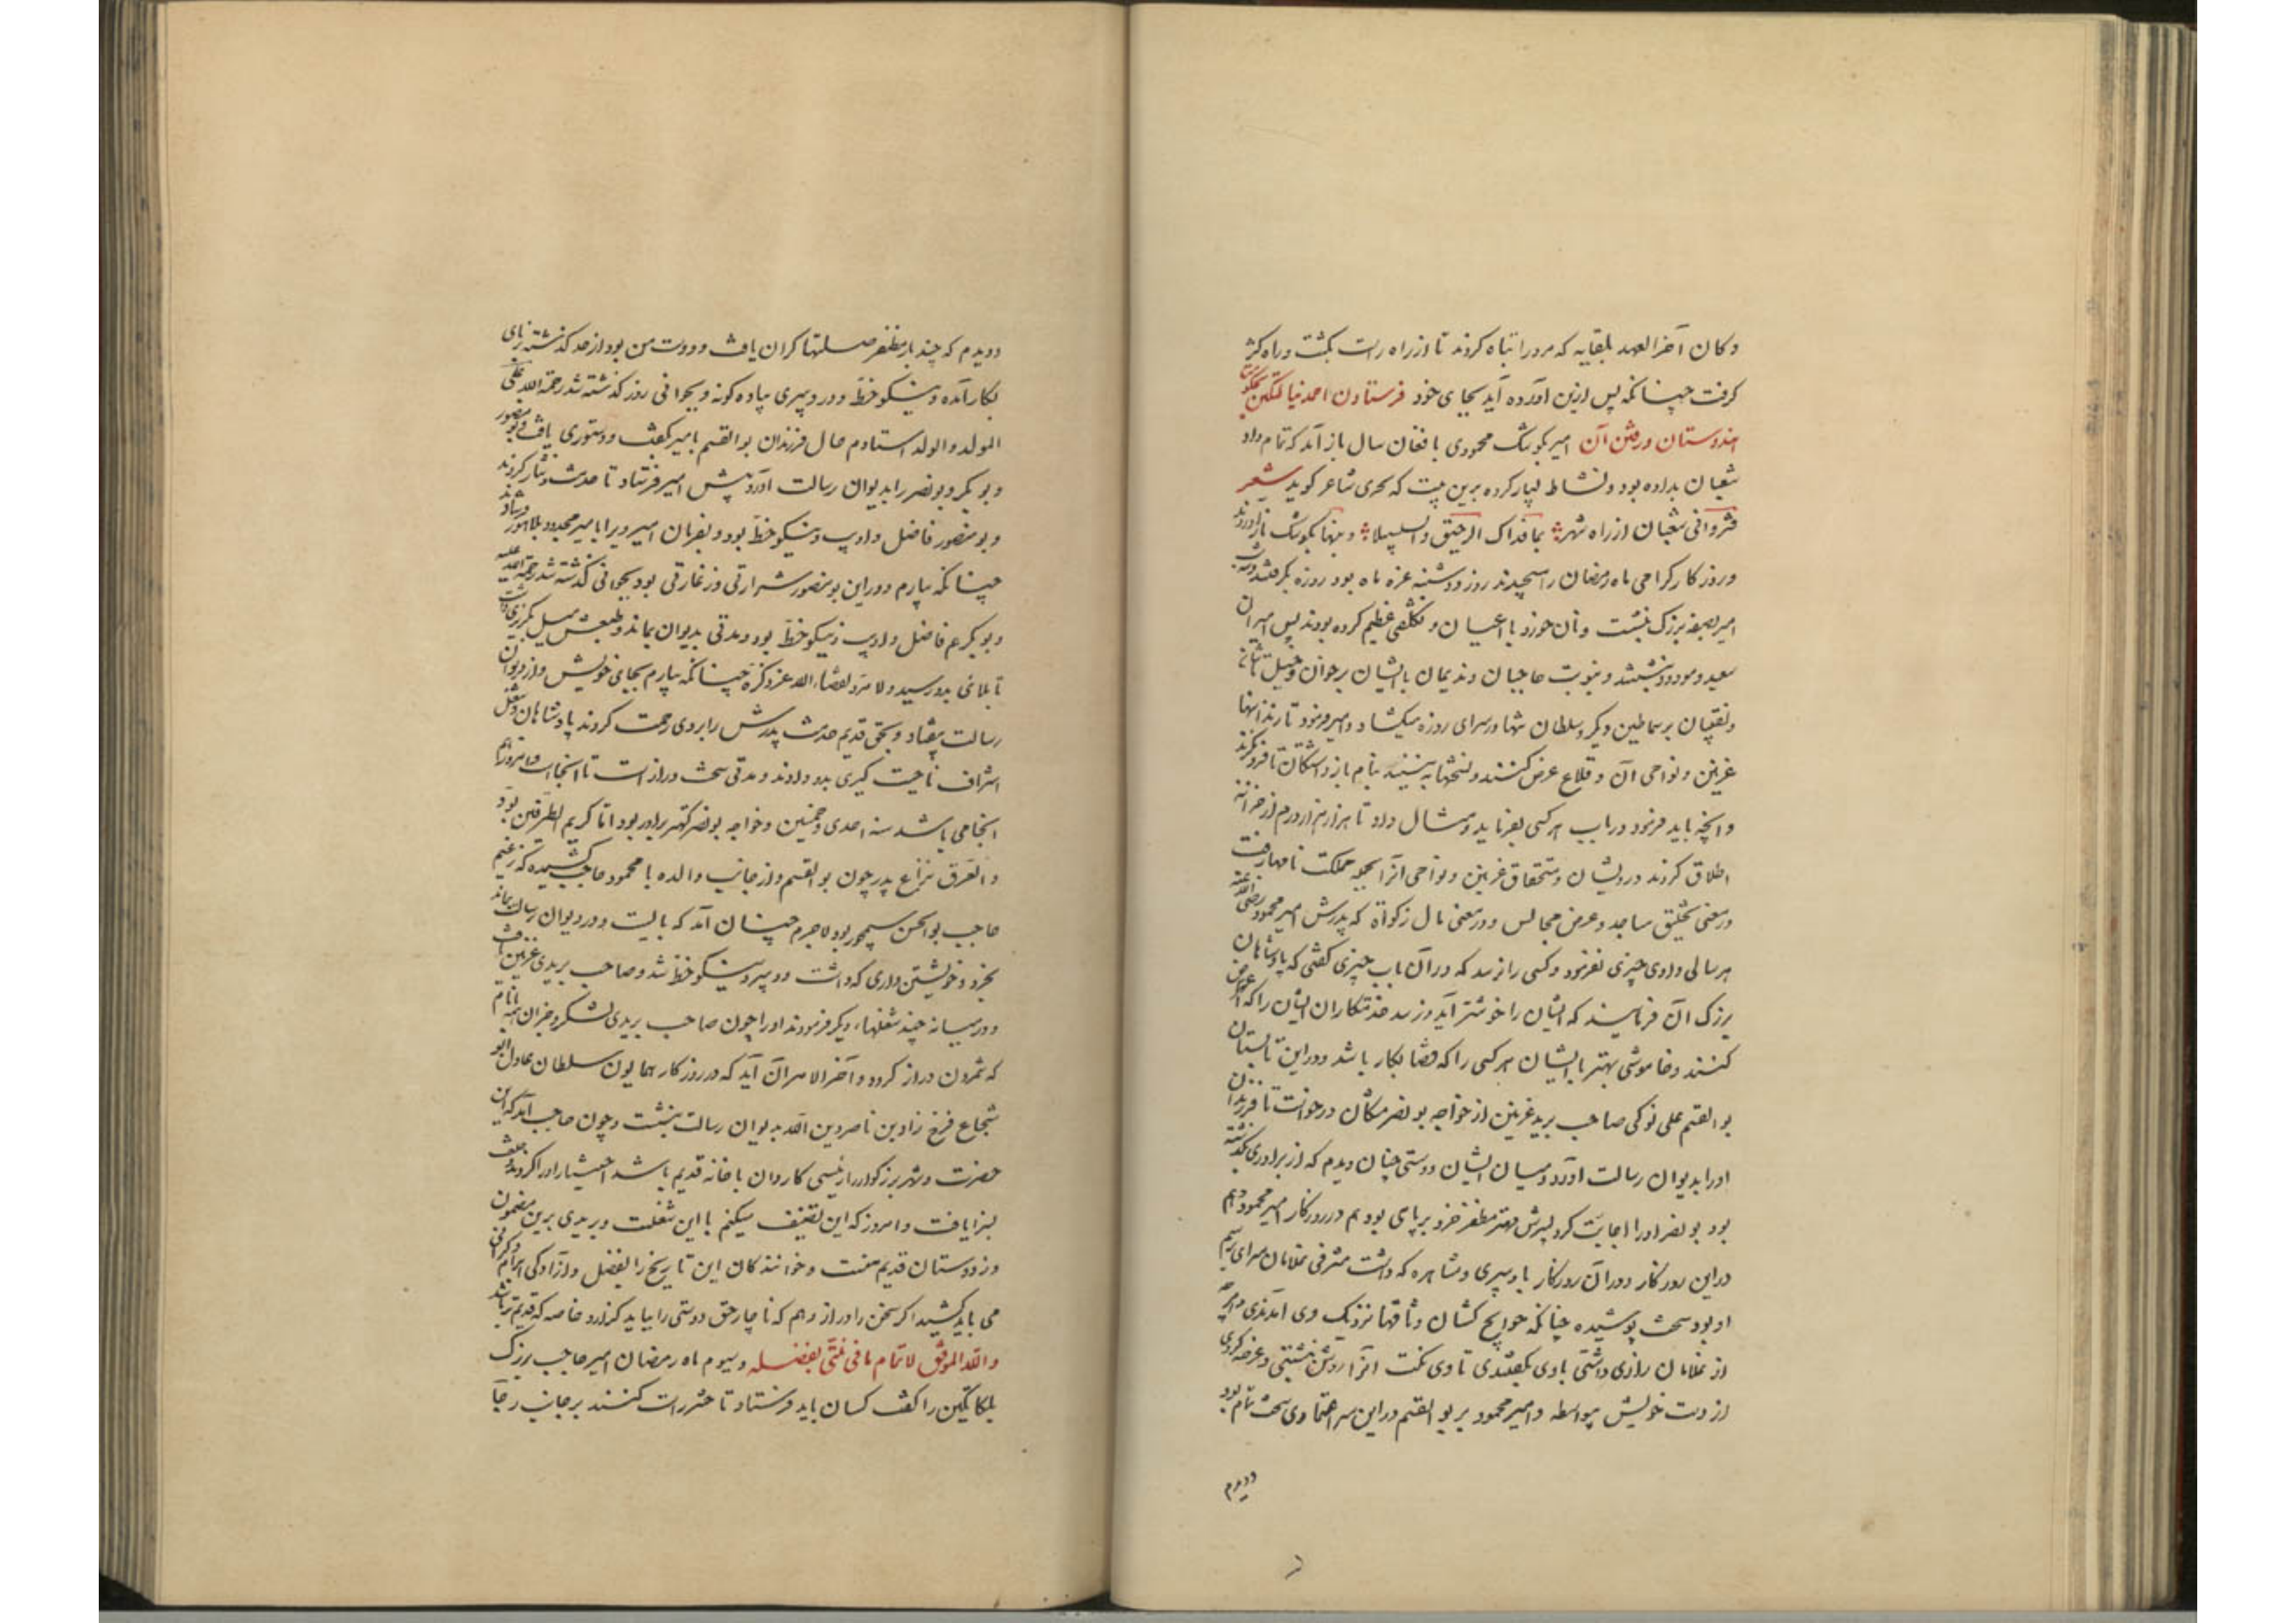 وکان آخر العهد بلقایه که مرو را تباه کردند تا از راه راست بگشت و راه کژ
گرفت چنانکه پس ازین آورده آید بجای خود فرستادن احمد نیالتگین
هندوستان و رفتن آن امیر بکوشک محمودی بافغان سال باز آمد که تمام داد
شعبان بداده بود و نشاط بسیار کرده برین بیت که بحتری شاعر گوید شعر
شعبان از راه شهر بما فداک الرحیق والسلسبیلا و بنها بکوشک باز آوردند
و روزگار گرامی ماه رمضان را بسیجیدند روز دوشنبه غره ماه بود روزه بگرفتند
امیر بصفه بزرگ بنشست و نان خورد با اعیان و تکلفی عظیم کرده بودند پس امیران
سعید و مودود بنشستند و بنوبت حاجبان و ندیمان با ایشان بر خوان و خیلتاشان
و نقیبان بر سماطین دیگر و سلطان تنها در سرای روزه میگشاد و امیر فرمود تا زندانهای
غزنین و نواحی آن و قلاع عرض کنند و نسختها بنام بازداشتگان تا فرو نگرند
و آنچه باید فرمود در باب هر کسی بفرماید و مثال داد تا هزار هزار درم از خزانه
اطلاق کردند درویشان و مستحقان غزنین و نواحی آنرا بجمله مملکت نامها رفت
در معنی تخلیق مساجد و عرض مجالس و در معنی مال زکوة که پدرش امیر محمود رضی الله عنه
هر سالی دادی چیزی نفرمود و کسی را نرسد که در آن باب چیزی گفتی که پادشاهان
بزرگ آن فرمایند که ایشان را خوشتر آید و نرسد خدمتکاران ایشان را که اعتراض
کنند و خاموشی بهتر با ایشان هر کسی را که قضا بکار باشد و درین تابستان
بو القسم علی نوکی صاحب برید غزنین از خواجه بو نصر مشکان درخواست تا فرزندان
او را بدیوان رسالت آورد و میان ایشان دوستی چنان دیدم که از برادری بگذشته
بود بو نصر او را اجابت کرد پسرش مهتر مظفر خرد بر پای بود هم در روزگار امیر محمود و هم
در این روزگار و در آن روزگار با دبیری و مشاهره که داشت مشرفی غلامان سرای برسم
او بود سخت پوشیده چنانکه حوایج کشان وثاقها نزدیک وی آمدندی و هرچه
از غلامان رازی داشتی با وی بگفتندی تا وی نکت آنرا روشن نبشتی و عرضه کردی
از دست خویش بیواسطه و امیر محمود بر بو القسم در این سر اعتمادی سخت تمام بود
و دیدم
و دیدم که چند بار مظفر صلتها گران یافت و دوست من بود از حد گذشته برنای
بکار آمده و نیکو خط و در دبیری پیاده گونه و بجوانی روز گذشته شد رحمة الله علی
المولد والولد استادم حال فرزندان بو القسم با امیر بگفت و دستوری یافت و بو منصور
و بو بکر و بو نصر را بدیوان رسالت آورد و پیش امیر فرستاد تا خدمت و نثار کردند
و بو منصور فاضل و ادیب و نیکو خط بود و بفرمان امیر ویرا با امیر مجدود بلاهور فرستادند
چنانکه بیارم و در این بو منصور شرارتی و زعارتی بود بجوانی گذشته شد رحمة الله علیه
و بو بکر هم فاضل و ادیب و نیکو خط بود و مدتی بدیوان بماند و طبعش میل بگربزی داشت
تا بلائی بدو رسید ولا مرد لقضاء الله عز ذکره چنانکه بیارم بجای خویش و از دیوان
رسالت بیفتاد و بحق قدیم خدمت پدرش را بر وی رحمت کردند پادشاهان و شغل
اشراف ناحیت گیری بدو دادند و مدتی سخت دراز است تا آنجاست و امروز هم
آنجا می باشد سنه احدی و خمسین و خواجه بو نصر کهتر برادر بود اما کریم الطرفین بود
والعرق نزاع پدر چون بو القسم و از جانب والده با محمود حاجب کشیده که زعیم
حاجب بو الحسن سیمجور بود لاجرم چنان آمد که بایست و در دیوان رسالت بماند
بخرد و خویشتن داری که داشت و دبیر و نیکو خط شد و صاحب بریدی غزنین یافت
و در میانه چند شغلها، دیگر فرمودند او را چون صاحب بریدی لشکر و جز آن همه بانام
که شمردن دراز گردد و آخر الامر آن آید که در روزگار همایون سلطان عادل ابو
شجاع فرخ زاد بن ناصر دین الله بدیوان رسالت بنشست و چون صاحب آمد که این
حضرت و شهر بزرگوار را رئیسی کاردان با خانه قدیم باشد اختیار او را کردند و خلعت
بسزا یافت و امروز که این تصنیف میکنم با این شغلست و بریدی برین مضمون
و ز دوستان قدیم منست و خوانندگان این تاریخ را بفضل و آزادگی ابرام و گرانی
می باید کشید اگر سخن را دراز دهم که ناچار حق دوستی را بباید گزارد خاصه که قدیمتر باشد
والله الموفق لاتمام ما فی نیتی بفضله و سیوم ماه رمضان امیر حاجب بزرگ
بلکاتگین را گفت کسان باید فرستاد تا حشر راست کنند بر جانب